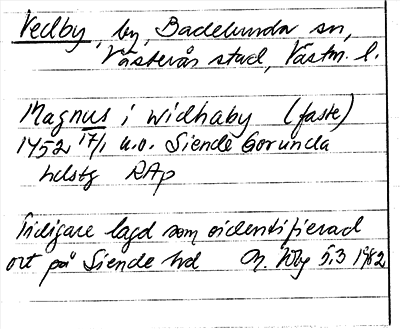 Vedby, by, Badelunda sn,
Västerås stad, Västm. l.
Magnus i widhaby (faste)
1452 17/1 u.o. Siende Gorunda
hdstg RAp
Tidigare lagd som oidentifierad
ort på Siende hd 5.3 1982